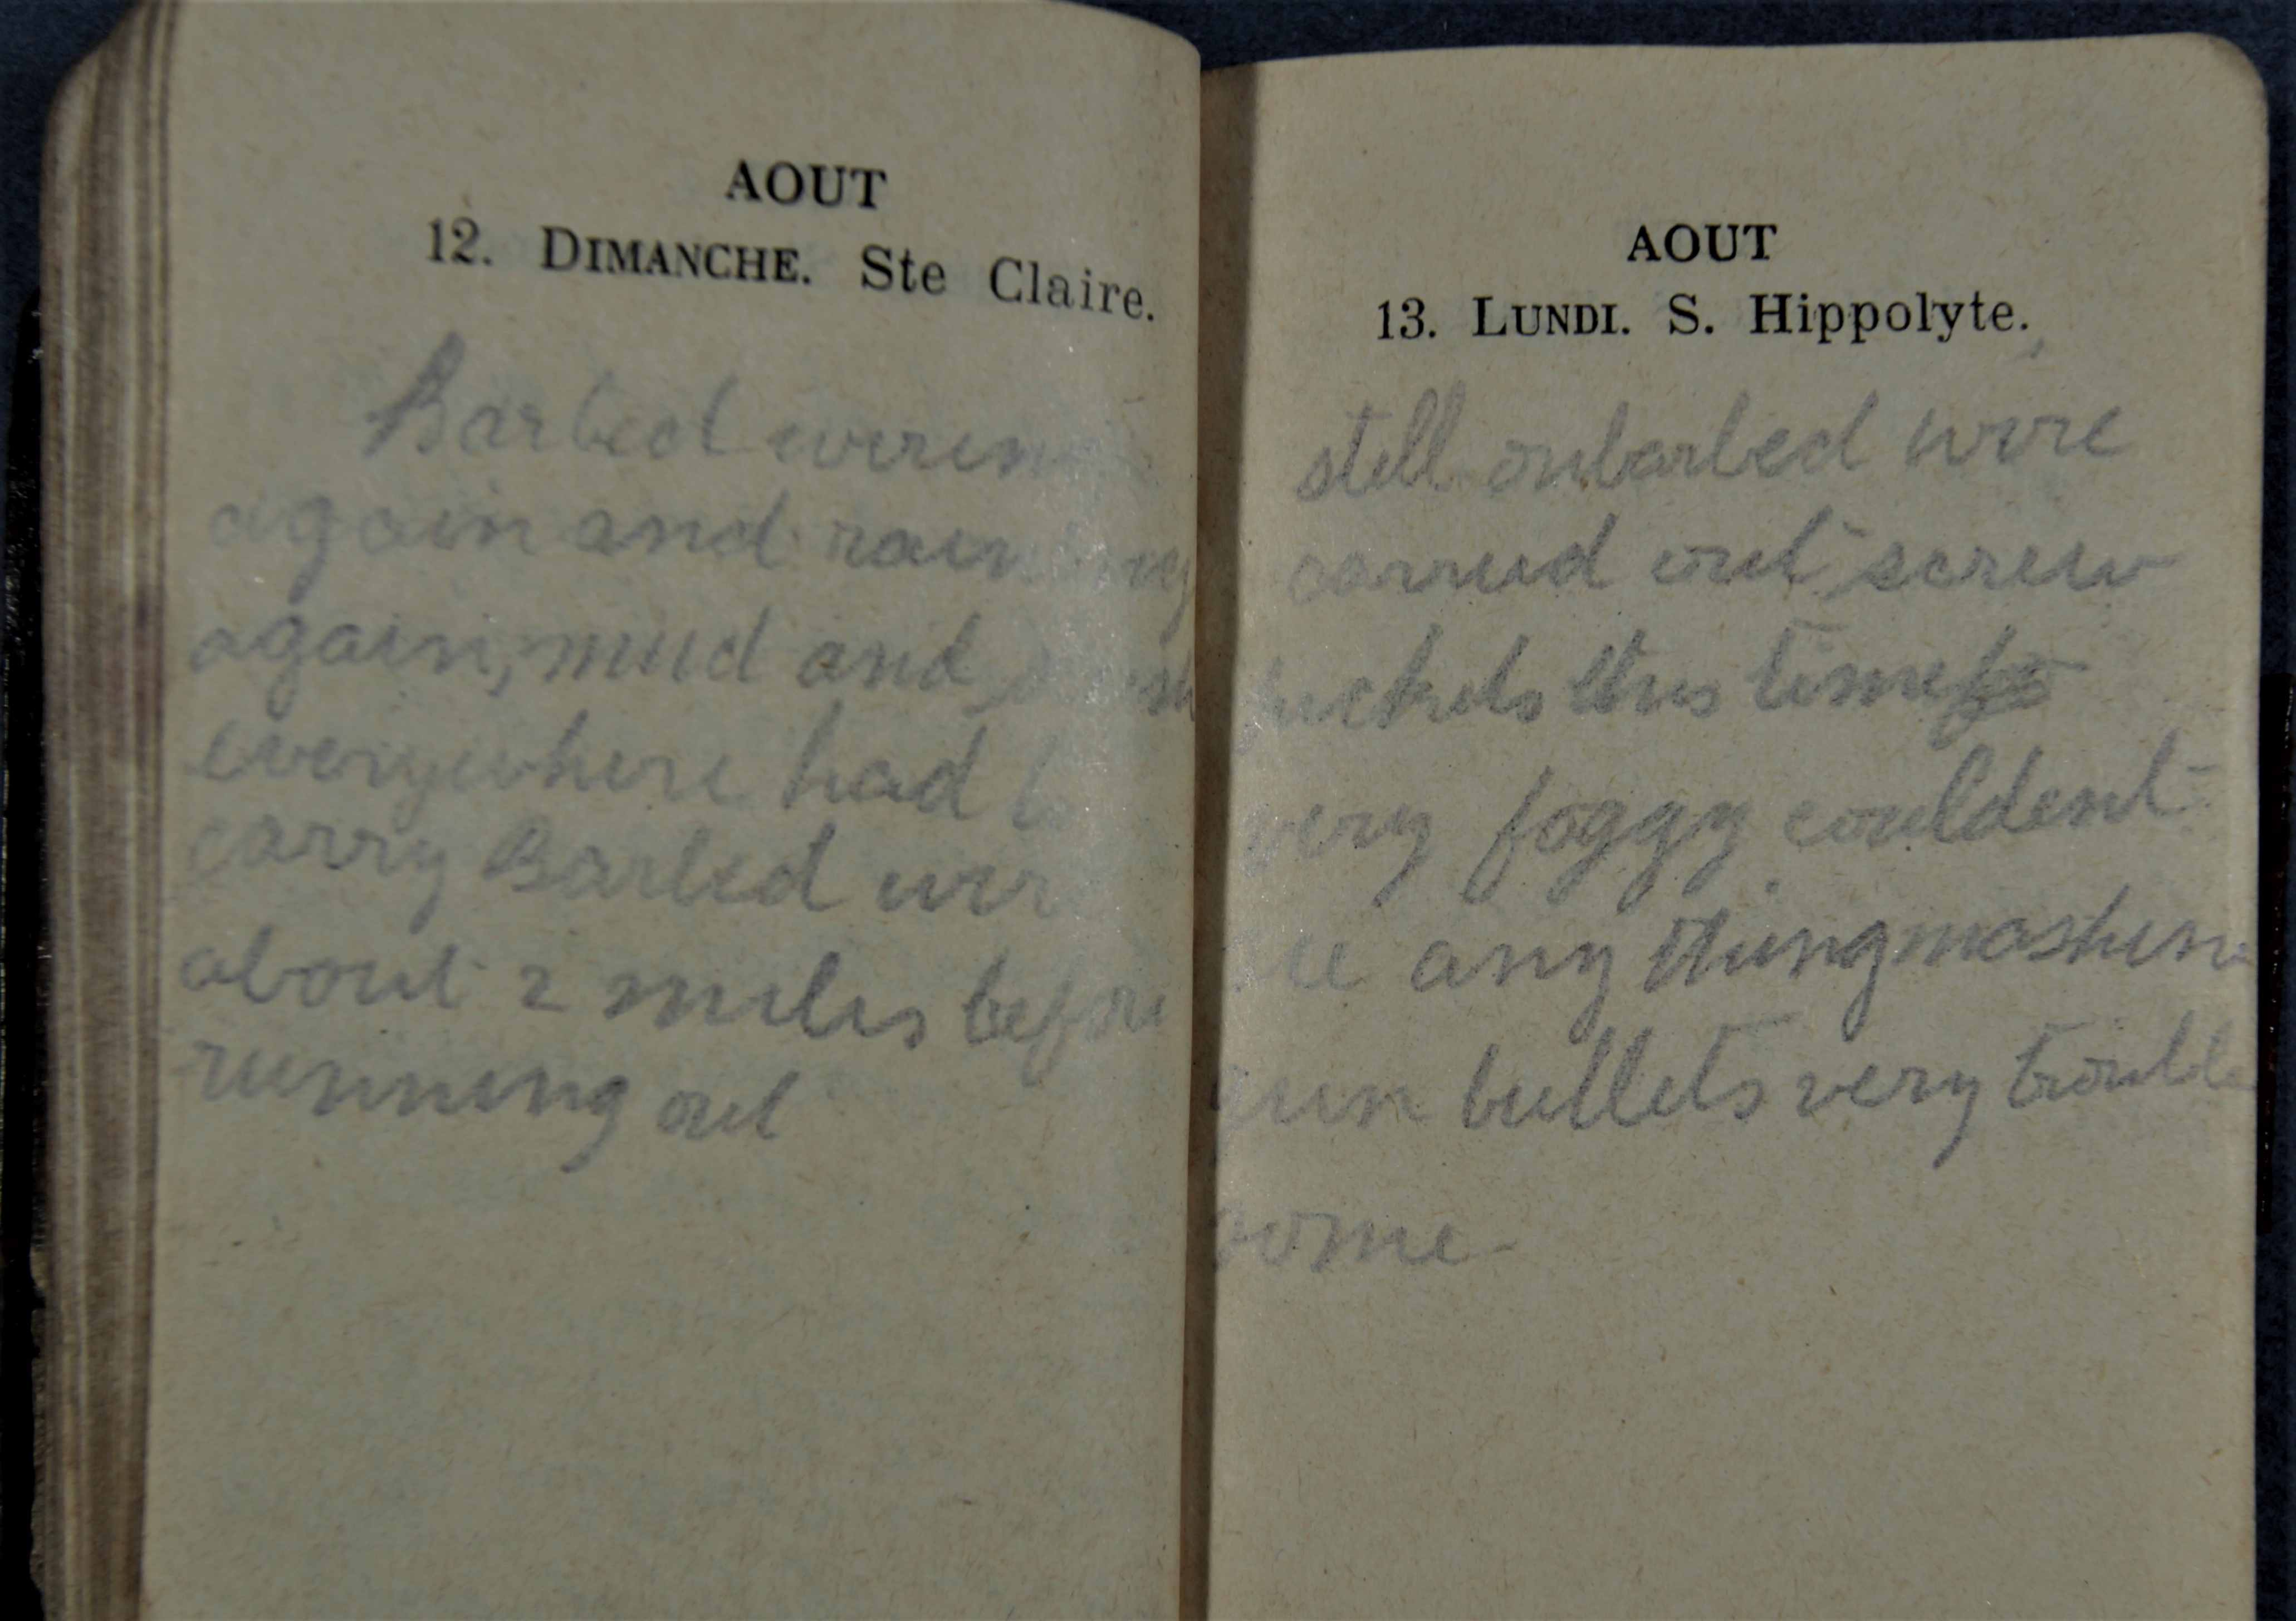 AOUT
12. DIMANCHE. Ste Claire.
Barbed wiring
again and raining
again, mud and
everywhere had to
carry Barbed wire
about 2 miles before
running out
AOUT
13. LUNDI. S. Hippolyte.
still on barbed wire
carried out screw
this time
very foggy couldent
see any thing mashine
gun bullets very trouble
some